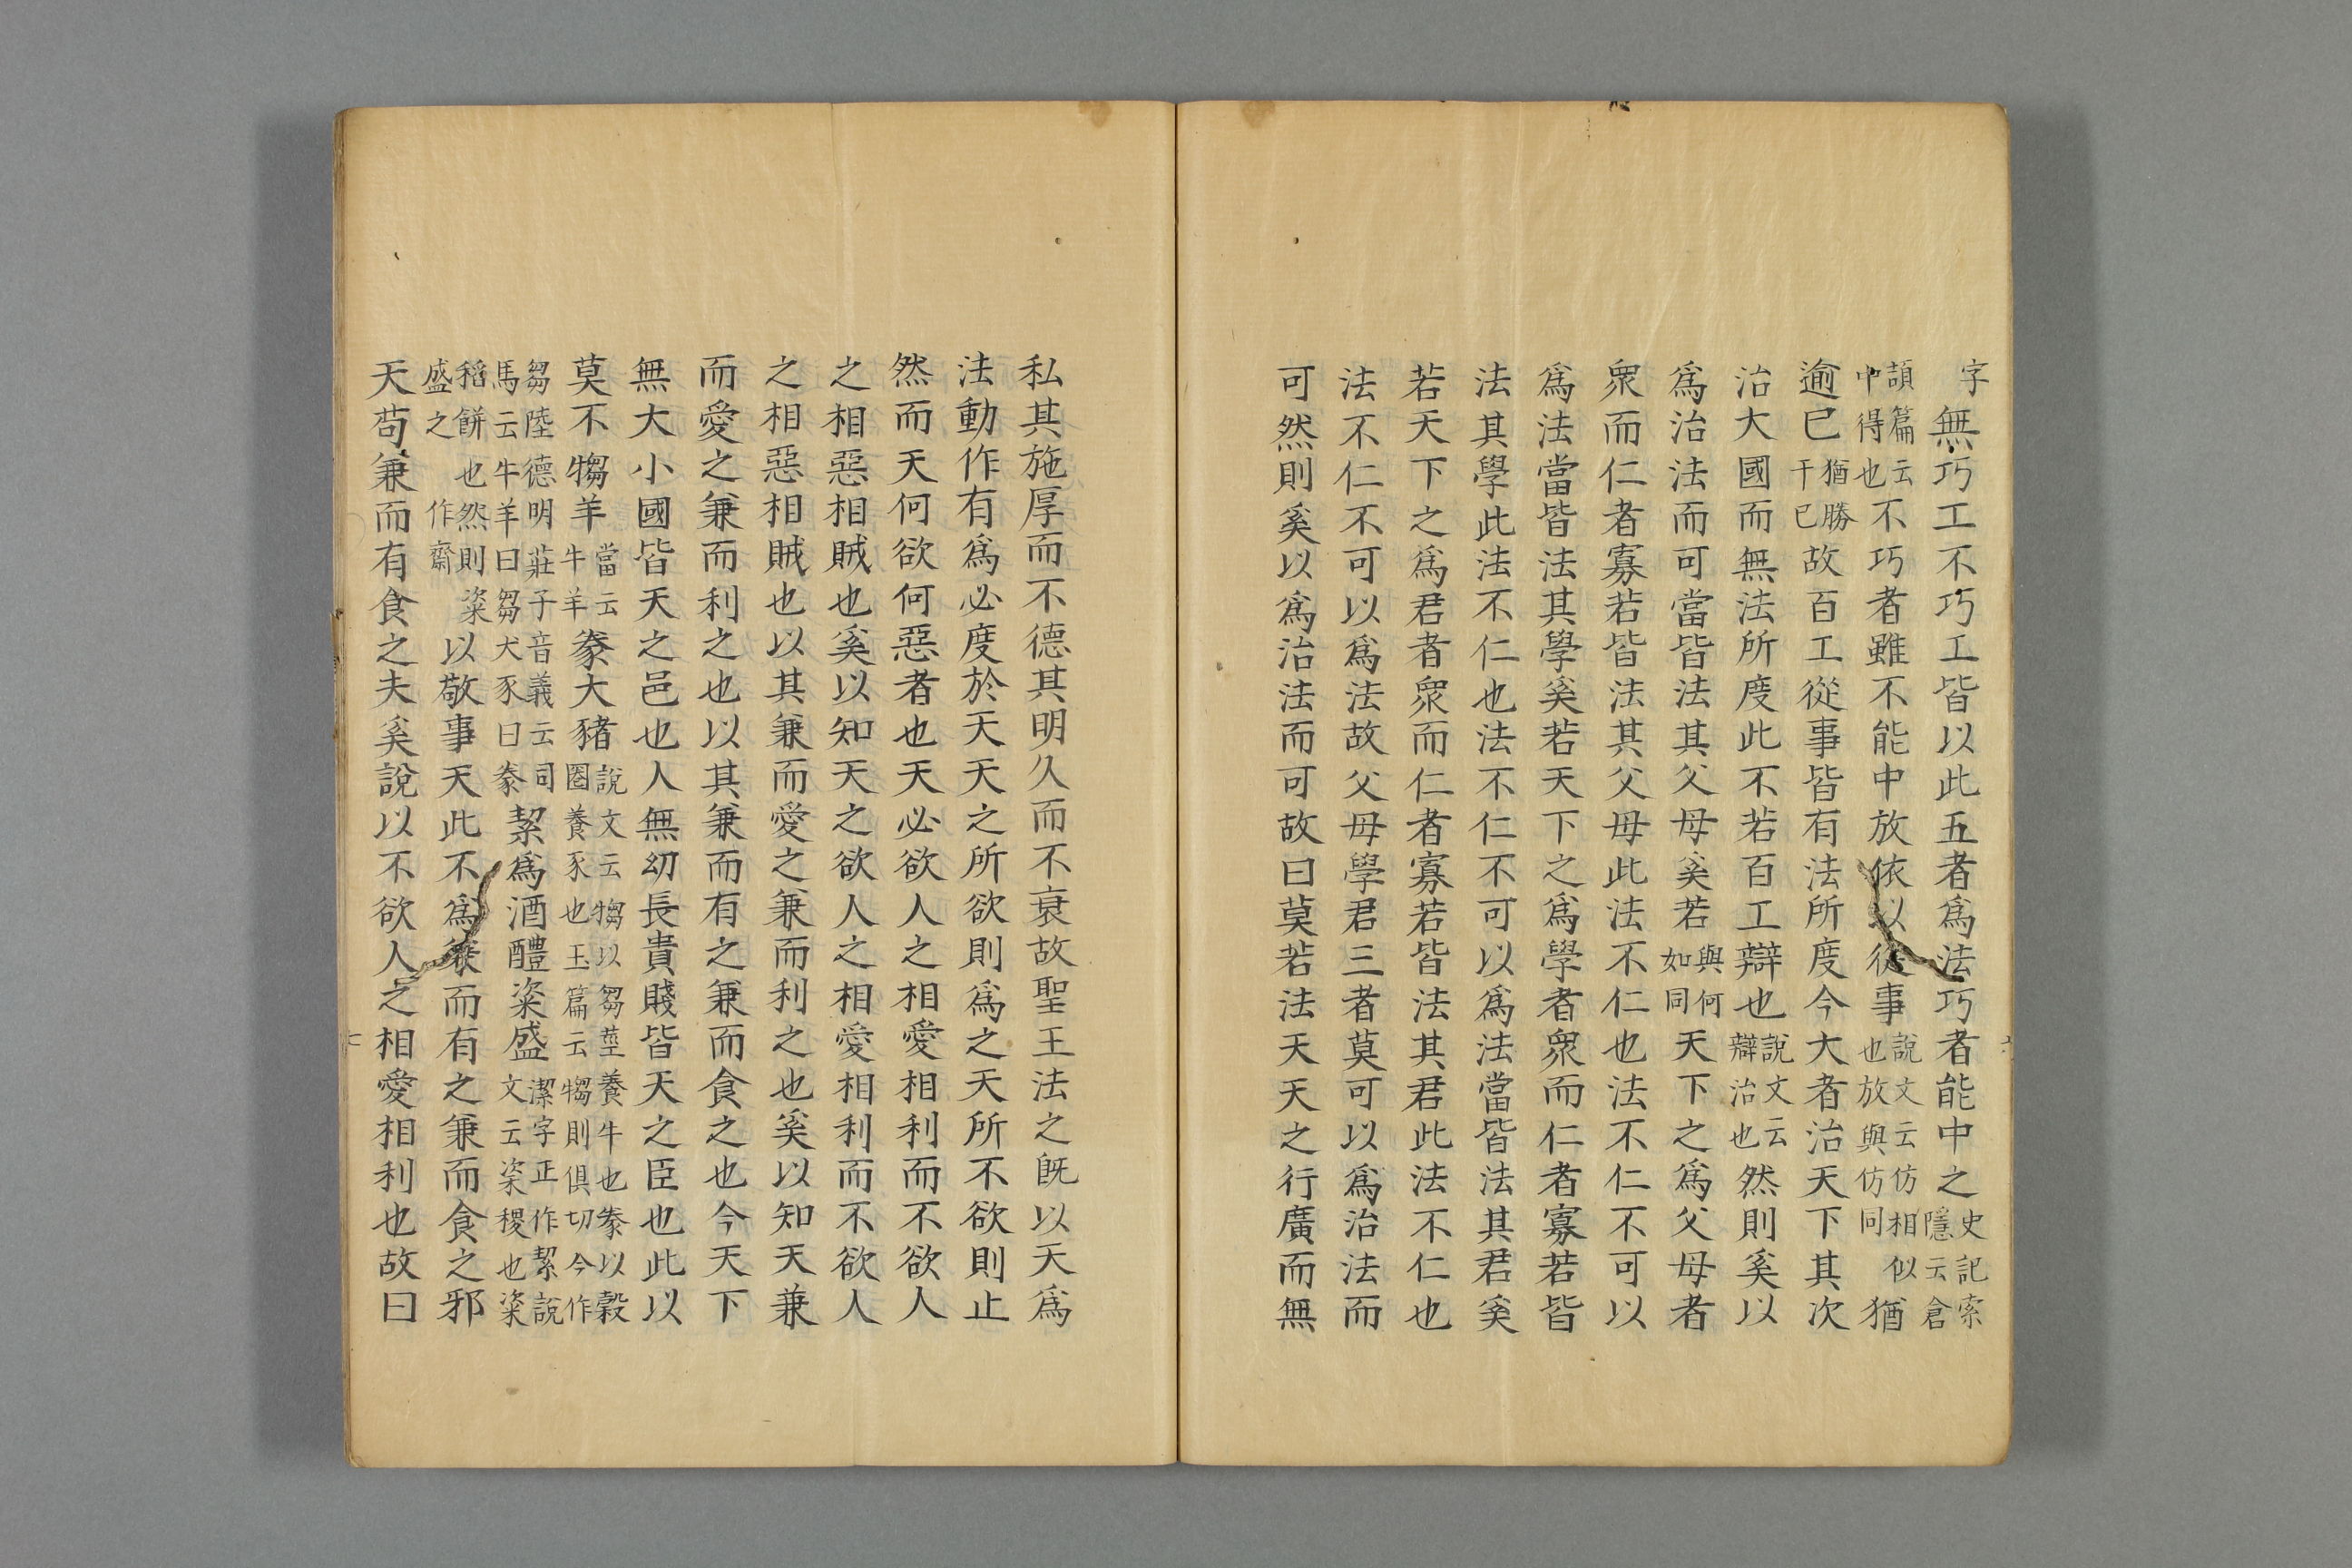 字無巧工不巧工皆以此五者爲法巧者能中之史記索隱云倉
頡篇云中得也不巧者雖不能中放依以從事說文云仿相似也放與仿同猶
逾已猶勝于已故百工從事皆有法所度今大者治天下其次
治大國而無法所度此不若百工辯也說文云辯治也然則奚以
爲治法而可當皆法其父母奚若與何如同天下之爲父母者
衆而仁者寡若皆法其父母此法不仁也法不仁不可以
爲法當皆法其學奚若天下之爲學者衆而仁者寡若皆
法其學此法不仁也法不仁不可以爲法當皆法其君奚
若天下之爲君者衆而仁者寡若皆法其君此法不仁也
法不仁不可以爲法故父母學君三者莫可以爲治法而
可然則奚以爲治法而可故曰莫若法天天之行廣而無
私其施厚而不德其明久而不衰故聖王法之既以天爲
法動作有爲必度於天天之所欲則爲之天所不欲則止
然而天何欲何惡者也天必欲人之相愛相利而不欲人
之相惡相賊也奚以知天之欲人之相愛相利而不欲人
之相惡相賊也以其兼而愛之兼而利之也奚以知天兼
而愛之兼而利之也以其兼而有之兼而食之也今天下
無大小國皆天之邑也人無幼長貴賤皆天之臣也此以
莫不犓羊當云牛羊豢犬豬說文云犓以芻莖養牛也豢以穀圈養豕也玉篇云犓則俱切今作
芻陸德明莊子音義云司馬云牛羊曰芻犬豕曰豢絜爲酒醴粢盛潔字正作絜說文云粢稷也粢
稻餅也然則粢盛之作齋以敬事天此不爲兼而有之兼而食之邪
天苟兼而有食之夫奚說以不欲人之相愛相利也故曰